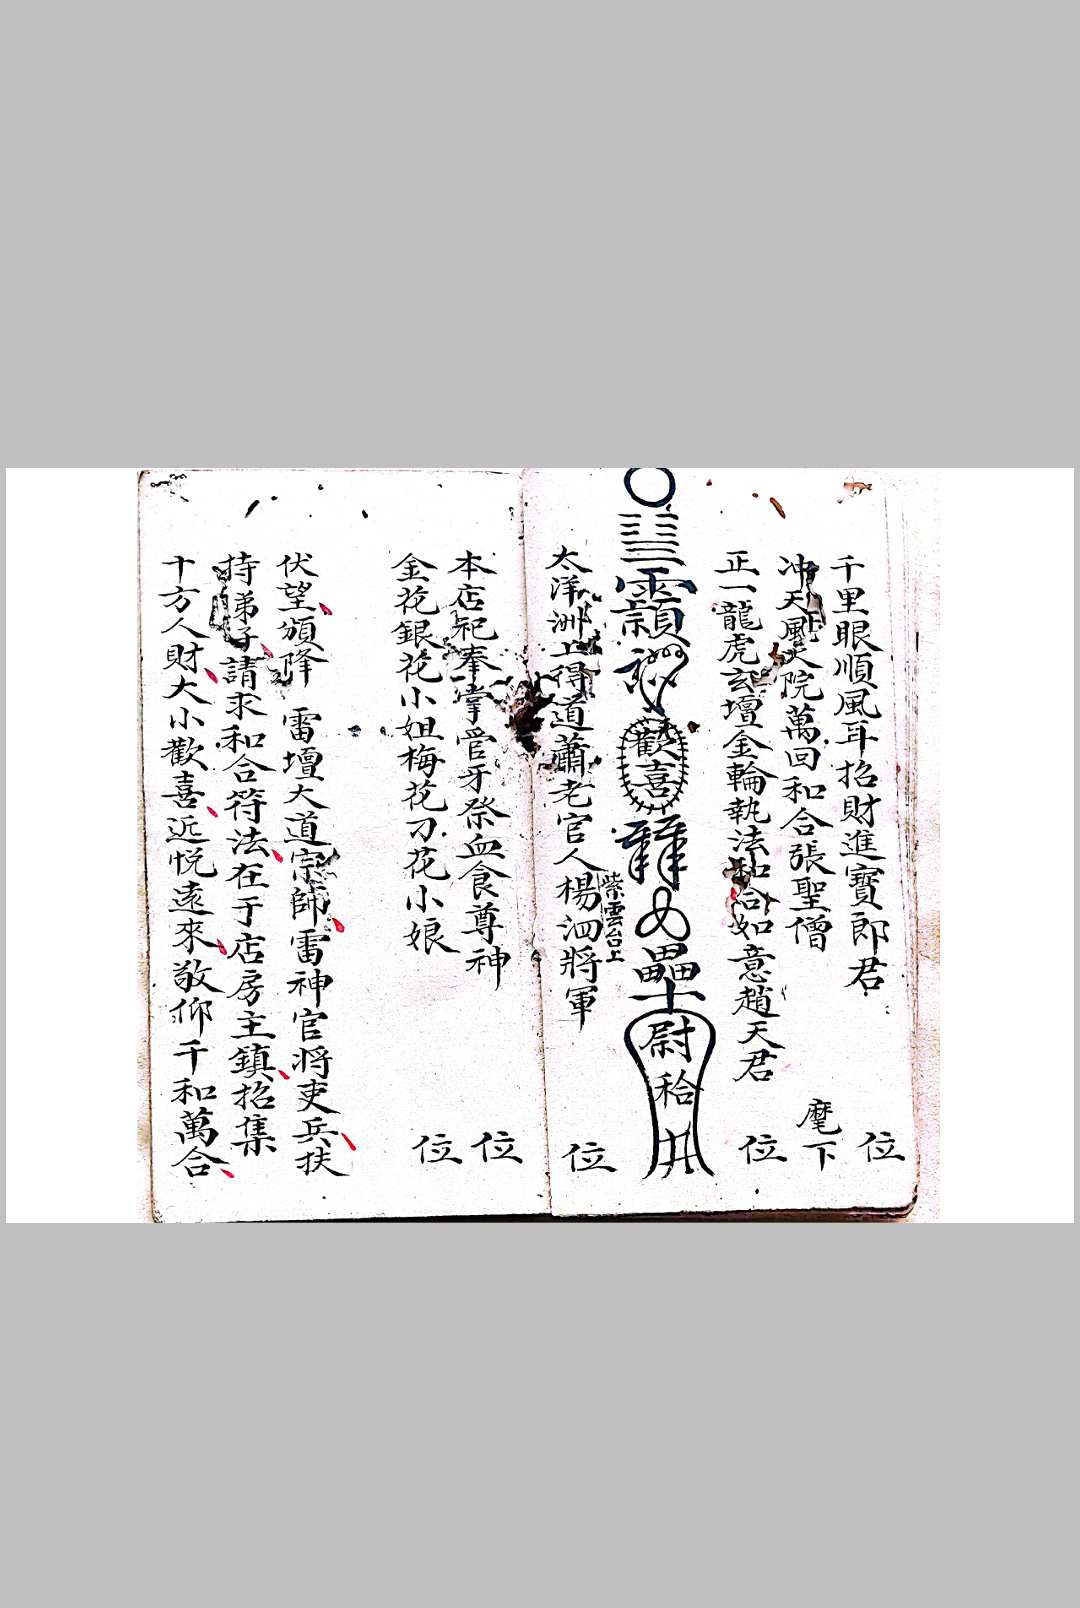 千里眼順風耳招財進寶郎君 位
冲天風火院萬回和合張聖僧 麾下
正一龍虎玄壇金輪執法和合如意趙天君 位
歡喜
尉
太洋洲上得道蕭老官人楊泗將軍 位
紫雲台上
本店祀奉掌管牙祭血食尊神 位
金花銀花小姐梅花刀花小娘 位
伏望頒降 雷壇大道宗師雷神官將吏兵扶
持弟子請求和合符法在于店房主鎮招集
十方人財大小歡喜近悅遠來敬仰千和萬合